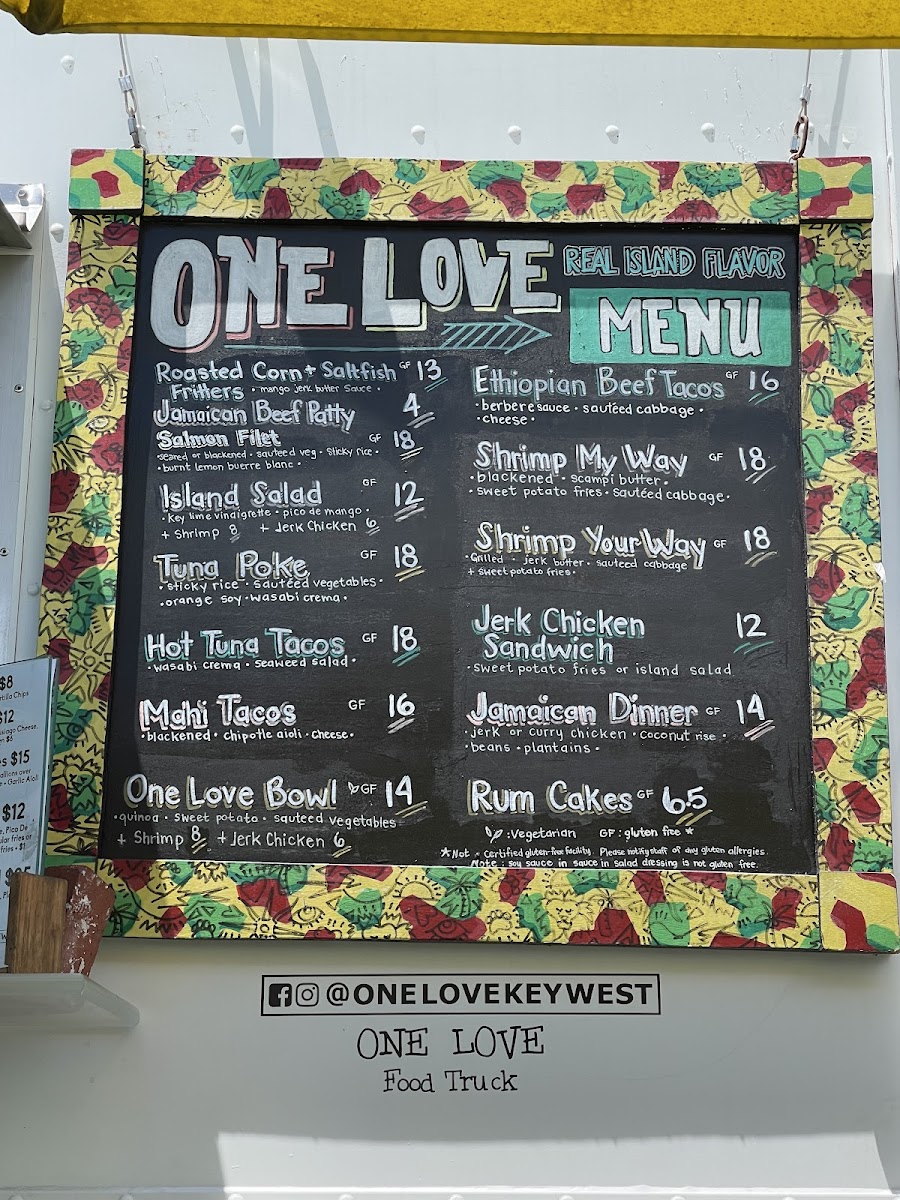 ONE LOVE
REAL ISLAND FLAVOR
MENU
Roasted Corn + Saltfish GF 13
Fritters • mango jerk butter sauce •
Jamaican Beef Patty 4
Salmon Filet GF 18
•seared or blackened • sauteed veg • sticky rice •
• burnt lemon buerre blanc •
Island Salad GF 12
• Key lime vinaigrette • pico de mango •
+ Shrimp 8 + Jerk Chicken 6
Tuna Poke GF 18
• sticky rice • sautéed vegetables •
• orange soy • wasabi crema •
Hot Tuna Tacos GF 18
• wasabi crema • seaweed salad •
Mahi Tacos GF 16
• blackened • chipotle aioli • cheese •
One Love Bowl GF 14
• quinoa • sweet potato • sauteed vegetables
+ Shrimp 8 + Jerk Chicken 6
Ethiopian Beef Tacos GF 16
• berbere sauce • sautéed cabbage •
• cheese •
Shrimp My Way GF 18
• blackened • scampi butter •
• sweet potato fries • sautéed cabbage •
Shrimp Your Way GF 18
• Grilled • jerk butter • sauteed cabbage
+ sweet potato fries •
Jerk Chicken 12
Sandwich
• sweet potato fries or island salad
Jamaican Dinner GF 14
• jerk or curry chicken • coconut rise •
• beans • plantains •
Rum Cakes GF 6.5
: Vegetarian GF : gluten free *
* Not a certified gluten-free facility. Please notify staff of any gluten allergies.
Note : soy sauce in sauce in salad dressing is not gluten free.
$8
tilla Chips
$12
siago Cheese,
$6
s $15
allions over
• Garlic Aioli
$12
e, Pico De
ular fries or
fries • $1
@ONELOVEKEYWEST
ONE LOVE
Food Truck